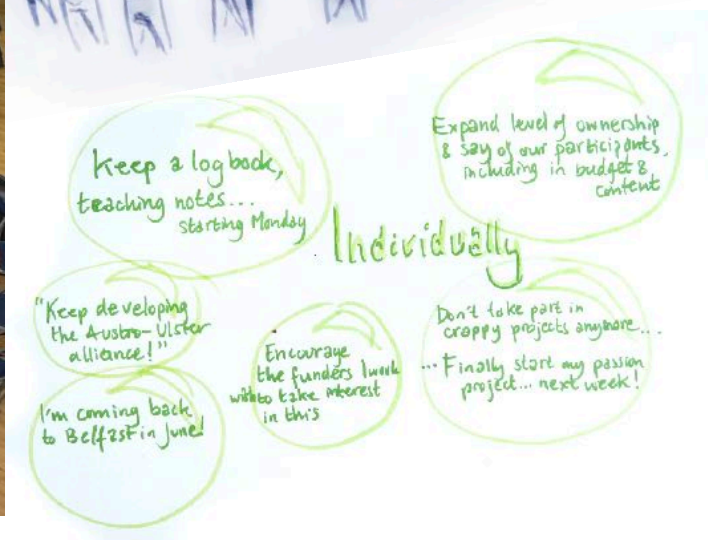 Keep a logbook,
teaching notes...
starting Monday
Expand level of ownership
& say of our participants,
including in budget &
content
Individually
"Keep developing
the Austro-Ulster
alliance!"
I'm coming back
to Belfast in June!
Encourage
the funders I work
with to take interest
in this
Don't take part in
crappy projects anymore...
... Finally start my passion
project... next week!